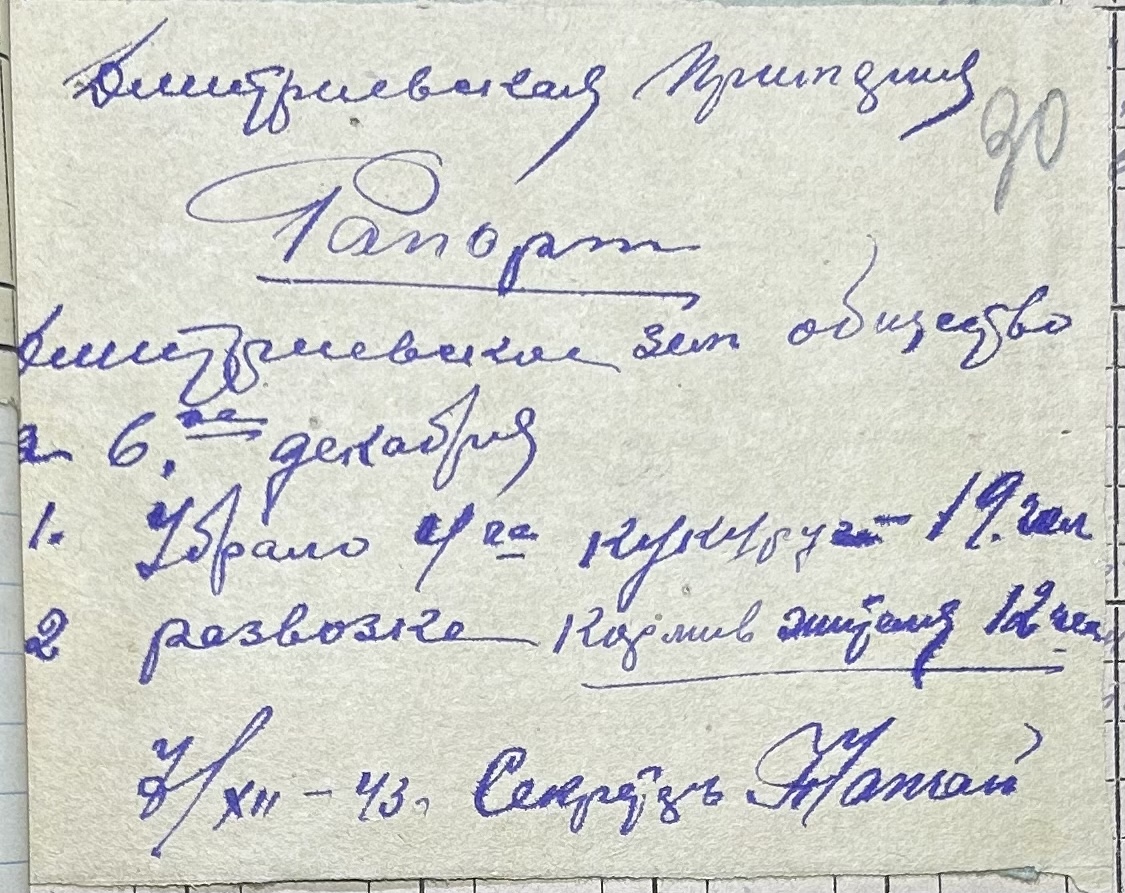 Дмитриевская Примария
90
Рапорт
Дмитриевское зем общество
за 6.ое декабря
1. Убрало 4 га кукурузы 19. чел
2 развозке кормив жителя 12 чел
7/XII – 43. Секретарь